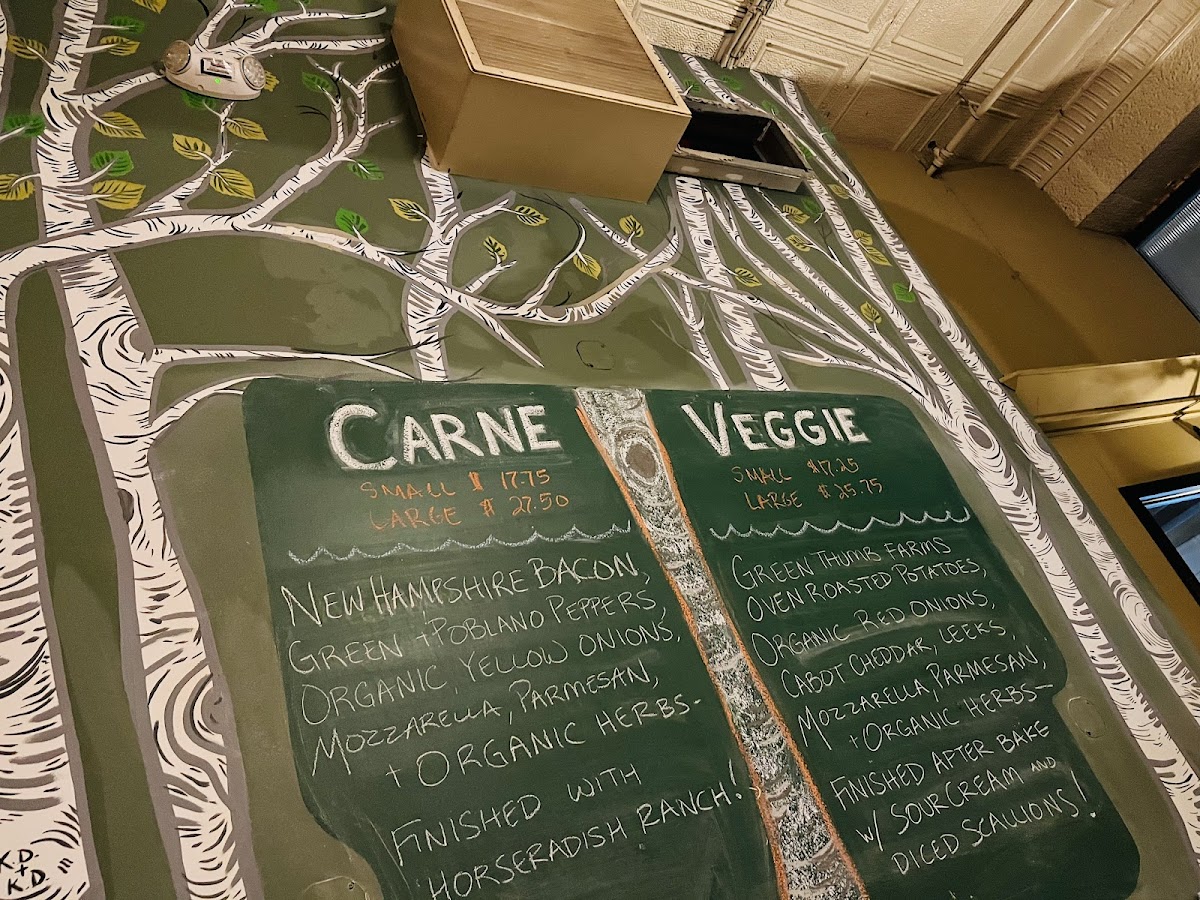 CARNE
SMALL $ 17.75
LARGE $ 27.50
NEW HAMPSHIRE BACON,
GREEN + POBLANO PEPPERS,
ORGANIC, YELLOW ONIONS,
MOZZARELLA, PARMESAN,
+ ORGANIC HERBS-
FINISHED WITH
HORSERADISH RANCH!
VEGGIE
SMALL $17.25
LARGE $25.75
GREEN THUMB FARMS
OVEN ROASTED POTATOES,
ORGANIC RED ONIONS,
CABOT CHEDDAR, LEEKS,
MOZZARELLA, PARMESAN,
+ ORGANIC HERBS—
FINISHED AFTER BAKE
W/ SOUR CREAM AND
DICED SCALLIONS!
K.D.
+
K.D.